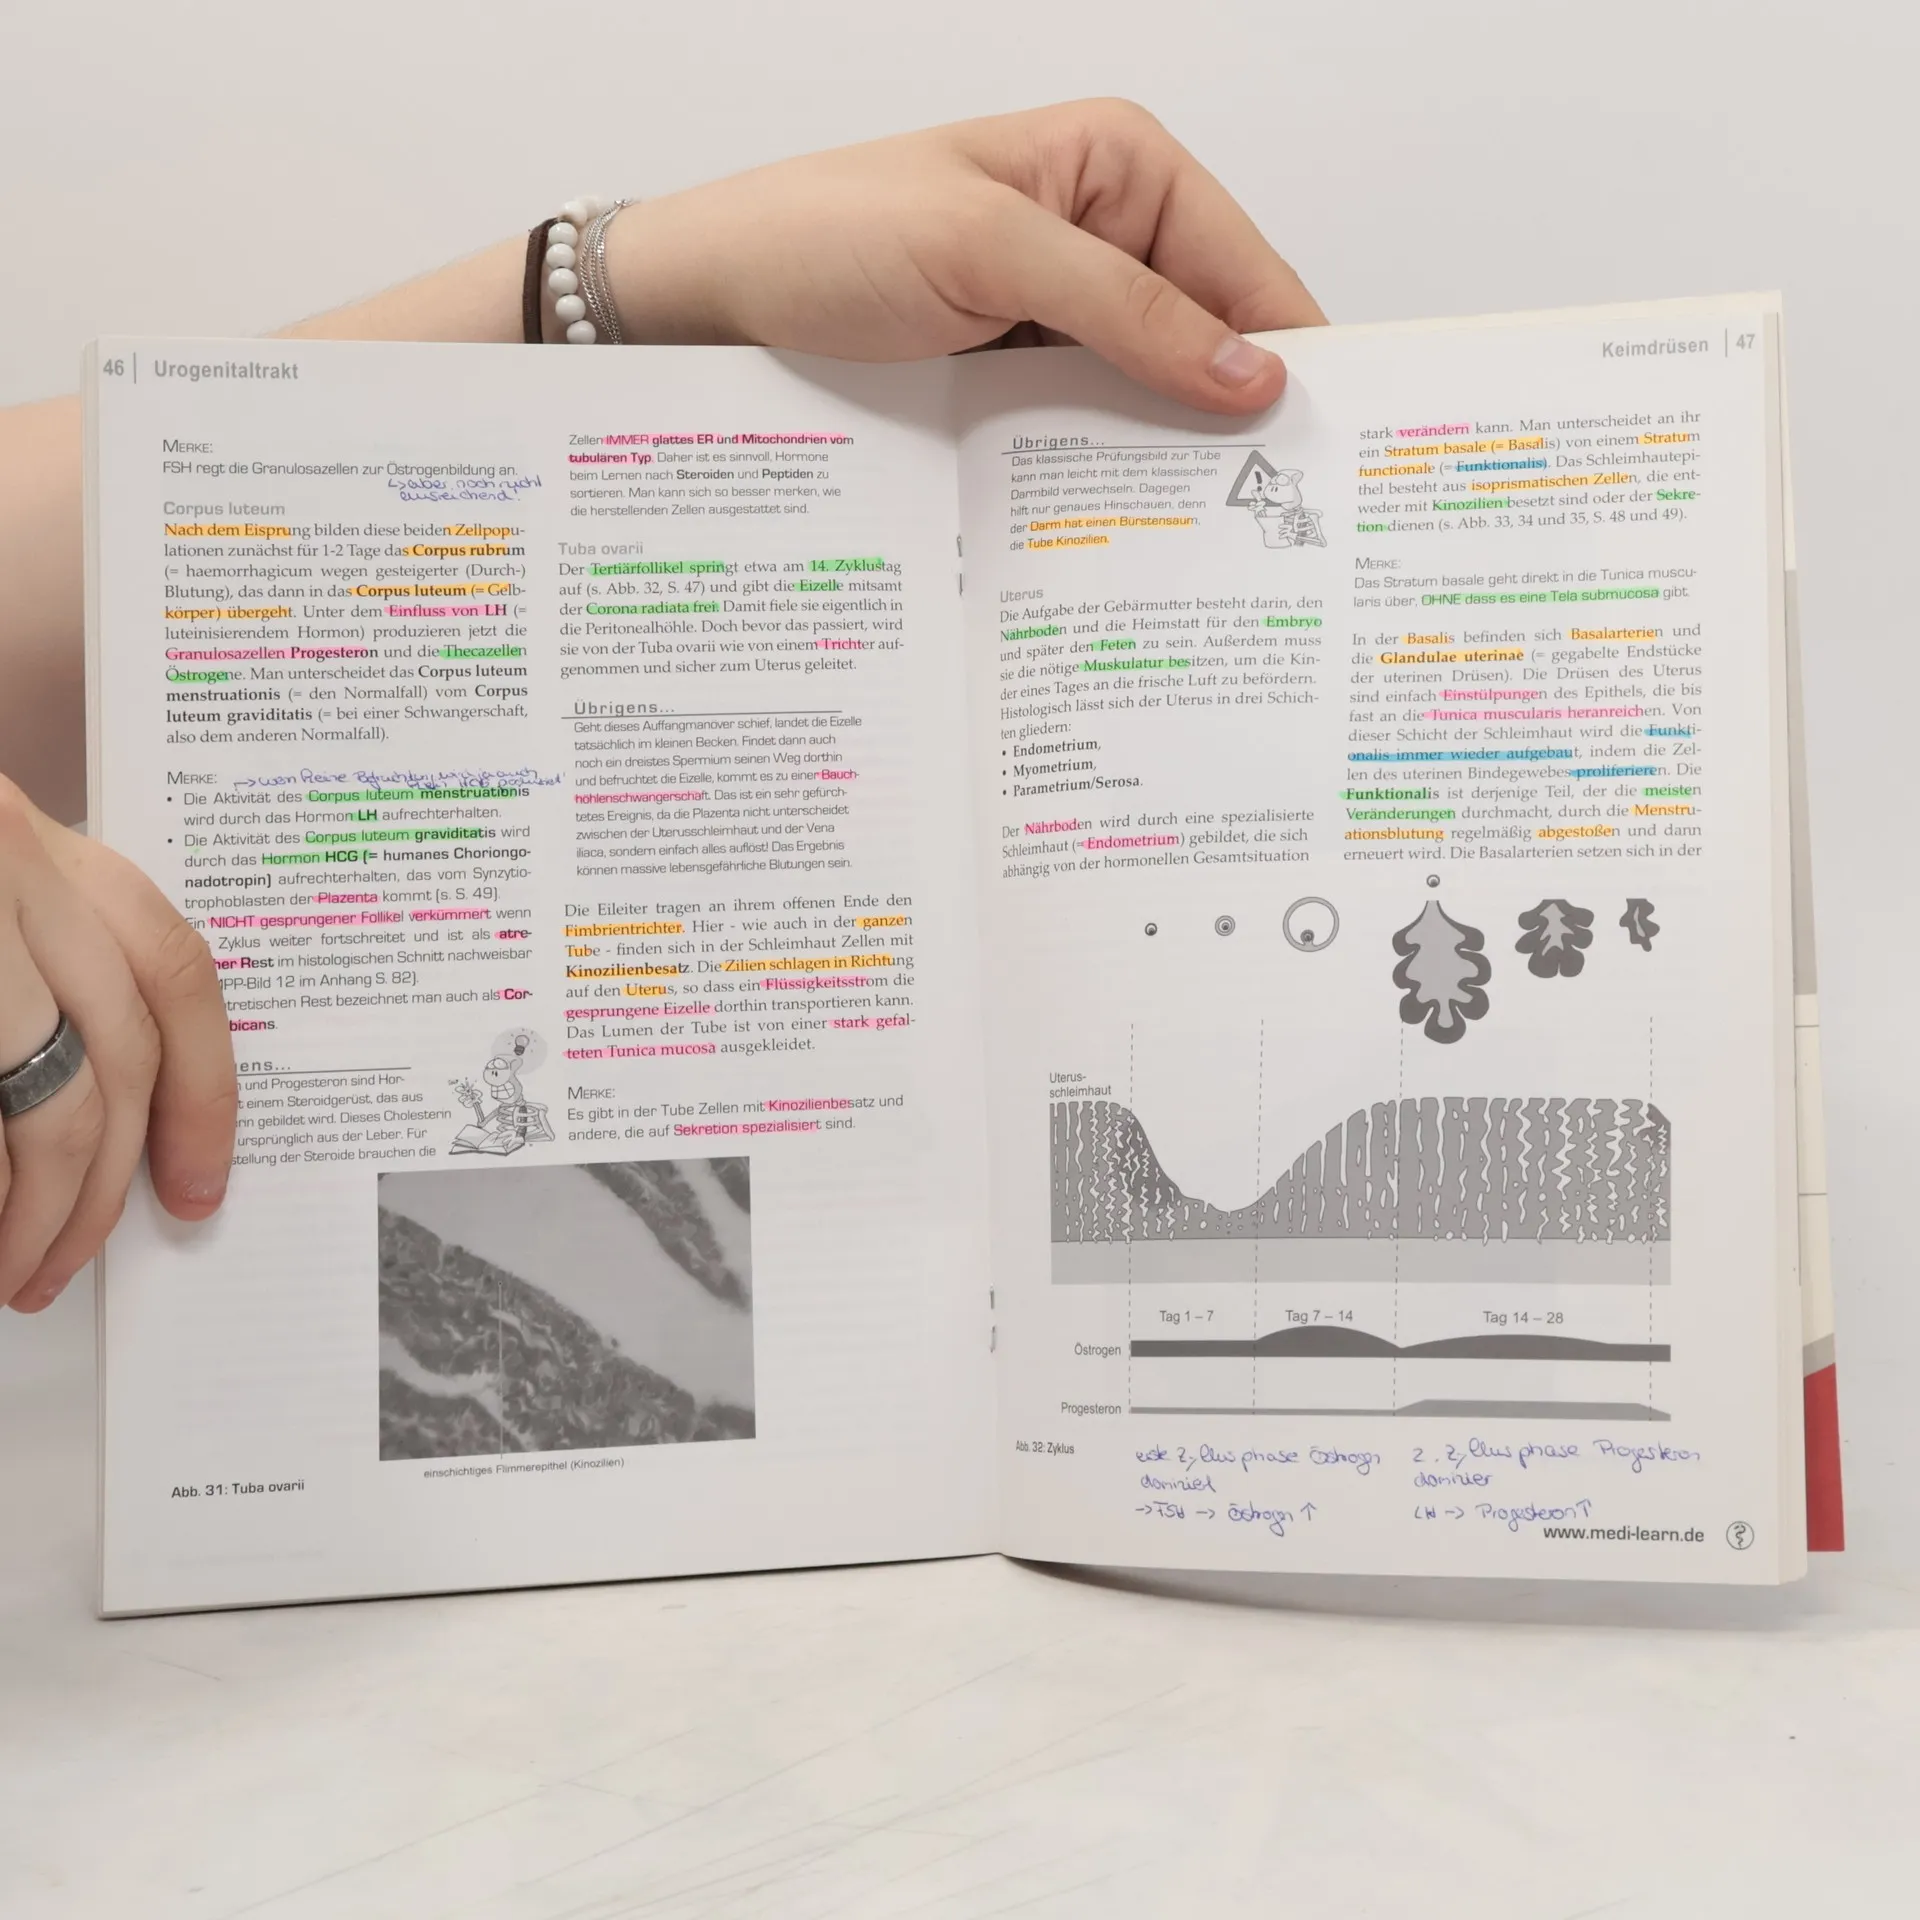 46 | Urogenitaltrakt
MERKE:
FSH regt die Granulosazellen zur Östrogenbildung an.
↳ aber noch nicht
ausreichend!
Corpus luteum
Nach dem Eisprung bilden diese beiden Zellpopu-
lationen zunächst für 1-2 Tage das Corpus rubrum
(= haemorrhagicum wegen gesteigerter (Durch-)
Blutung), das dann in das Corpus luteum (= Gelb-
körper) übergeht. Unter dem Einfluss von LH (=
luteinisierendem Hormon) produzieren jetzt die
Granulosazellen Progesteron und die Thecazellen
Östrogene. Man unterscheidet das Corpus luteum
menstruationis (= den Normalfall) vom Corpus
luteum graviditatis (= bei einer Schwangerschaft,
also dem anderen Normalfall).
MERKE:
• Die Aktivität des Corpus luteum menstruationis
wird durch das Hormon LH aufrechterhalten.
• Die Aktivität des Corpus luteum graviditatis wird
durch das Hormon HCG (= humanes Choriongo-
nadotropin) aufrechterhalten, das vom Synzytio-
trophoblasten der Plazenta kommt (s. S. 49).
Ein NICHT gesprungener Follikel verkümmert wenn
Zyklus weiter fortschreitet und ist als atre-
her Rest im histologischen Schnitt nachweisbar
IPP-Bild 12 im Anhang S. 82).
tretischen Rest bezeichnet man auch als Cor-
bicans.
ens...
und Progesteron sind Hor-
t einem Steroidgerüst, das aus
rin gebildet wird. Dieses Cholesterin
ursprünglich aus der Leber. Für
stellung der Steroide brauchen die
Zellen IMMER glattes ER und Mitochondrien vom
tubulären Typ. Daher ist es sinnvoll, Hormone
beim Lernen nach Steroiden und Peptiden zu
sortieren. Man kann sich so besser merken, wie
die herstellenden Zellen ausgestattet sind.
Tuba ovarii
Der Tertiärfollikel springt etwa am 14. Zyklustag
auf (s. Abb. 32, S. 47) und gibt die Eizelle mitsamt
der Corona radiata frei. Damit fiele sie eigentlich in
die Peritonealhöhle. Doch bevor das passiert, wird
sie von der Tuba ovarii wie von einem Trichter auf-
genommen und sicher zum Uterus geleitet.
Übrigens...
Geht dieses Auffangmanöver schief, landet die Eizelle
tatsächlich im kleinen Becken. Findet dann auch
noch ein dreistes Spermium seinen Weg dorthin
und befruchtet die Eizelle, kommt es zu einer Bauch-
höhlenschwangerschaft. Das ist ein sehr gefürch-
tetes Ereignis, da die Plazenta nicht unterscheidet
zwischen der Uterusschleimhaut und der Vena
iliaca, sondern einfach alles auflöst! Das Ergebnis
können massive lebensgefährliche Blutungen sein.
Die Eileiter tragen an ihrem offenen Ende den
Fimbrientrichter. Hier - wie auch in der ganzen
Tube - finden sich in der Schleimhaut Zellen mit
Kinozilienbesatz. Die Zilien schlagen in Richtung
auf den Uterus, so dass ein Flüssigkeitsstrom die
gesprungene Eizelle dorthin transportieren kann.
Das Lumen der Tube ist von einer stark gefal-
teten Tunica mucosa ausgekleidet.
MERKE:
Es gibt in der Tube Zellen mit Kinozilienbesatz und
andere, die auf Sekretion spezialisiert sind.
einschichtiges Flimmerepithel (Kinozilien)
Abb. 31: Tuba ovarii
Keimdrüsen | 47
Übrigens...
Das klassische Prüfungsbild zur Tube
kann man leicht mit dem klassischen
Darmbild verwechseln. Dagegen
hilft nur genaues Hinschauen, denn
der Darm hat einen Bürstensaum,
die Tube Kinozilien.
Uterus
Die Aufgabe der Gebärmutter besteht darin, den
Nährboden und die Heimstatt für den Embryo
und später den Feten zu sein. Außerdem muss
sie die nötige Muskulatur besitzen, um die Kin-
der eines Tages an die frische Luft zu befördern.
Histologisch lässt sich der Uterus in drei Schich-
ten gliedern:
• Endometrium,
• Myometrium,
• Parametrium/Serosa.
Der Nährboden wird durch eine spezialisierte
Schleimhaut (= Endometrium) gebildet, die sich
abhängig von der hormonellen Gesamtsituation
stark verändern kann. Man unterscheidet an ihr
ein Stratum basale (= Basalis) von einem Stratum
functionale (= Funktionalis). Das Schleimhautepi-
thel besteht aus isoprismatischen Zellen, die ent-
weder mit Kinozilien besetzt sind oder der Sekre-
tion dienen (s. Abb. 33, 34 und 35, S. 48 und 49).
MERKE:
Das Stratum basale geht direkt in die Tunica muscu-
laris über, OHNE dass es eine Tela submucosa gibt.
In der Basalis befinden sich Basalarterien und
die Glandulae uterinae (= gegabelte Endstücke
der uterinen Drüsen). Die Drüsen des Uterus
sind einfach Einstülpungen des Epithels, die bis
fast an die Tunica muscularis heranreichen. Von
dieser Schicht der Schleimhaut wird die Funkti-
onalis immer wieder aufgebaut, indem die Zel-
len des uterinen Bindegewebes proliferieren. Die
Funktionalis ist derjenige Teil, der die meisten
Veränderungen durchmacht, durch die Menstru-
ationsblutung regelmäßig abgestoßen und dann
erneuert wird. Die Basalarterien setzen sich in der
Uterus-
schleimhaut
Tag 1 – 7 Tag 7 – 14 Tag 14 – 28
Östrogen
Progesteron
Abb. 32: Zyklus
erste Zyklusphase Östrogen
dominiert
→ FSH → Östrogen ↑
2. Zyklusphase Progesteron
dominier
LH → Progesteron ↑
www.medi-learn.de